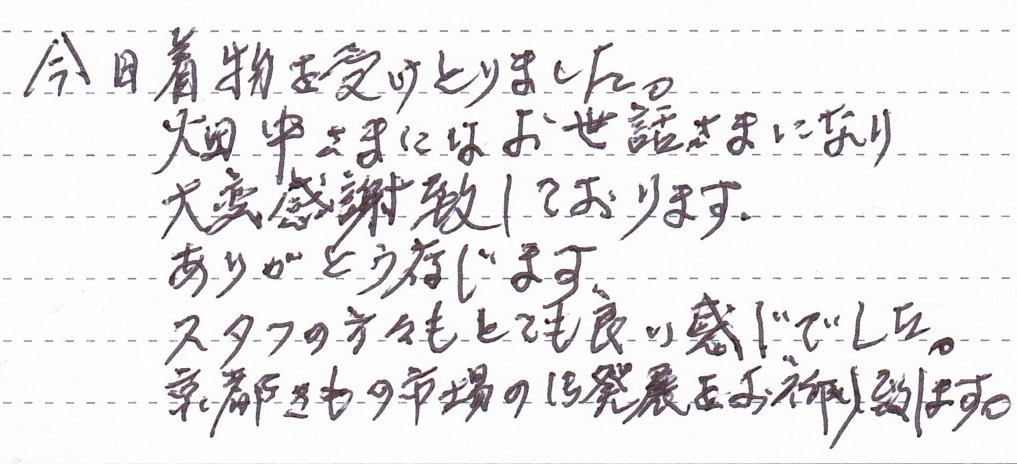 今日着物を受けとりました。
畑中さまにはお世話さまになり
大変感謝致しております.
ありがとう存じます.
スタフの方々もとても良い感じでした。
京都きもの市場の御発展をお祈り致します。